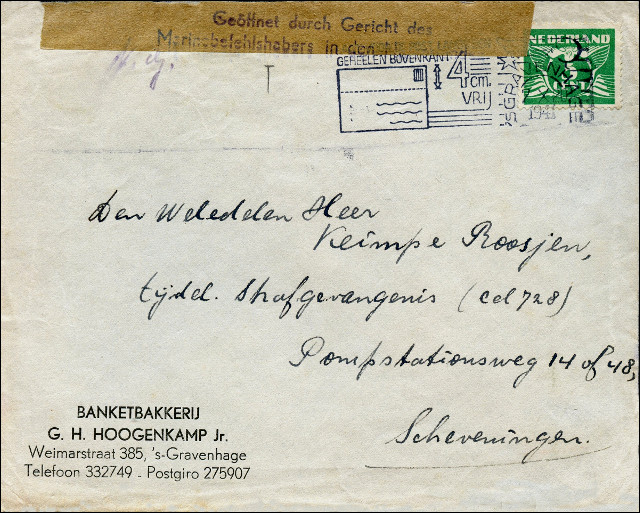 Geöffnet durch Gericht des
Marinebefehlshabers in den
GEHEELEN BOVENKANT
4 cm.
VRIJ
NEDERLAND
1941
Den Weledelen Heer
Keimpe Roosjen,
tijdel. Strafgevangenis (cel 728)
Pompstationsweg 14 of 48,
Scheveningen.
BANKETBAKKERIJ
G. H. HOOGENKAMP Jr.
Weimarstraat 385, 's-Gravenhage
Telefoon 332749 - Postgiro 275907